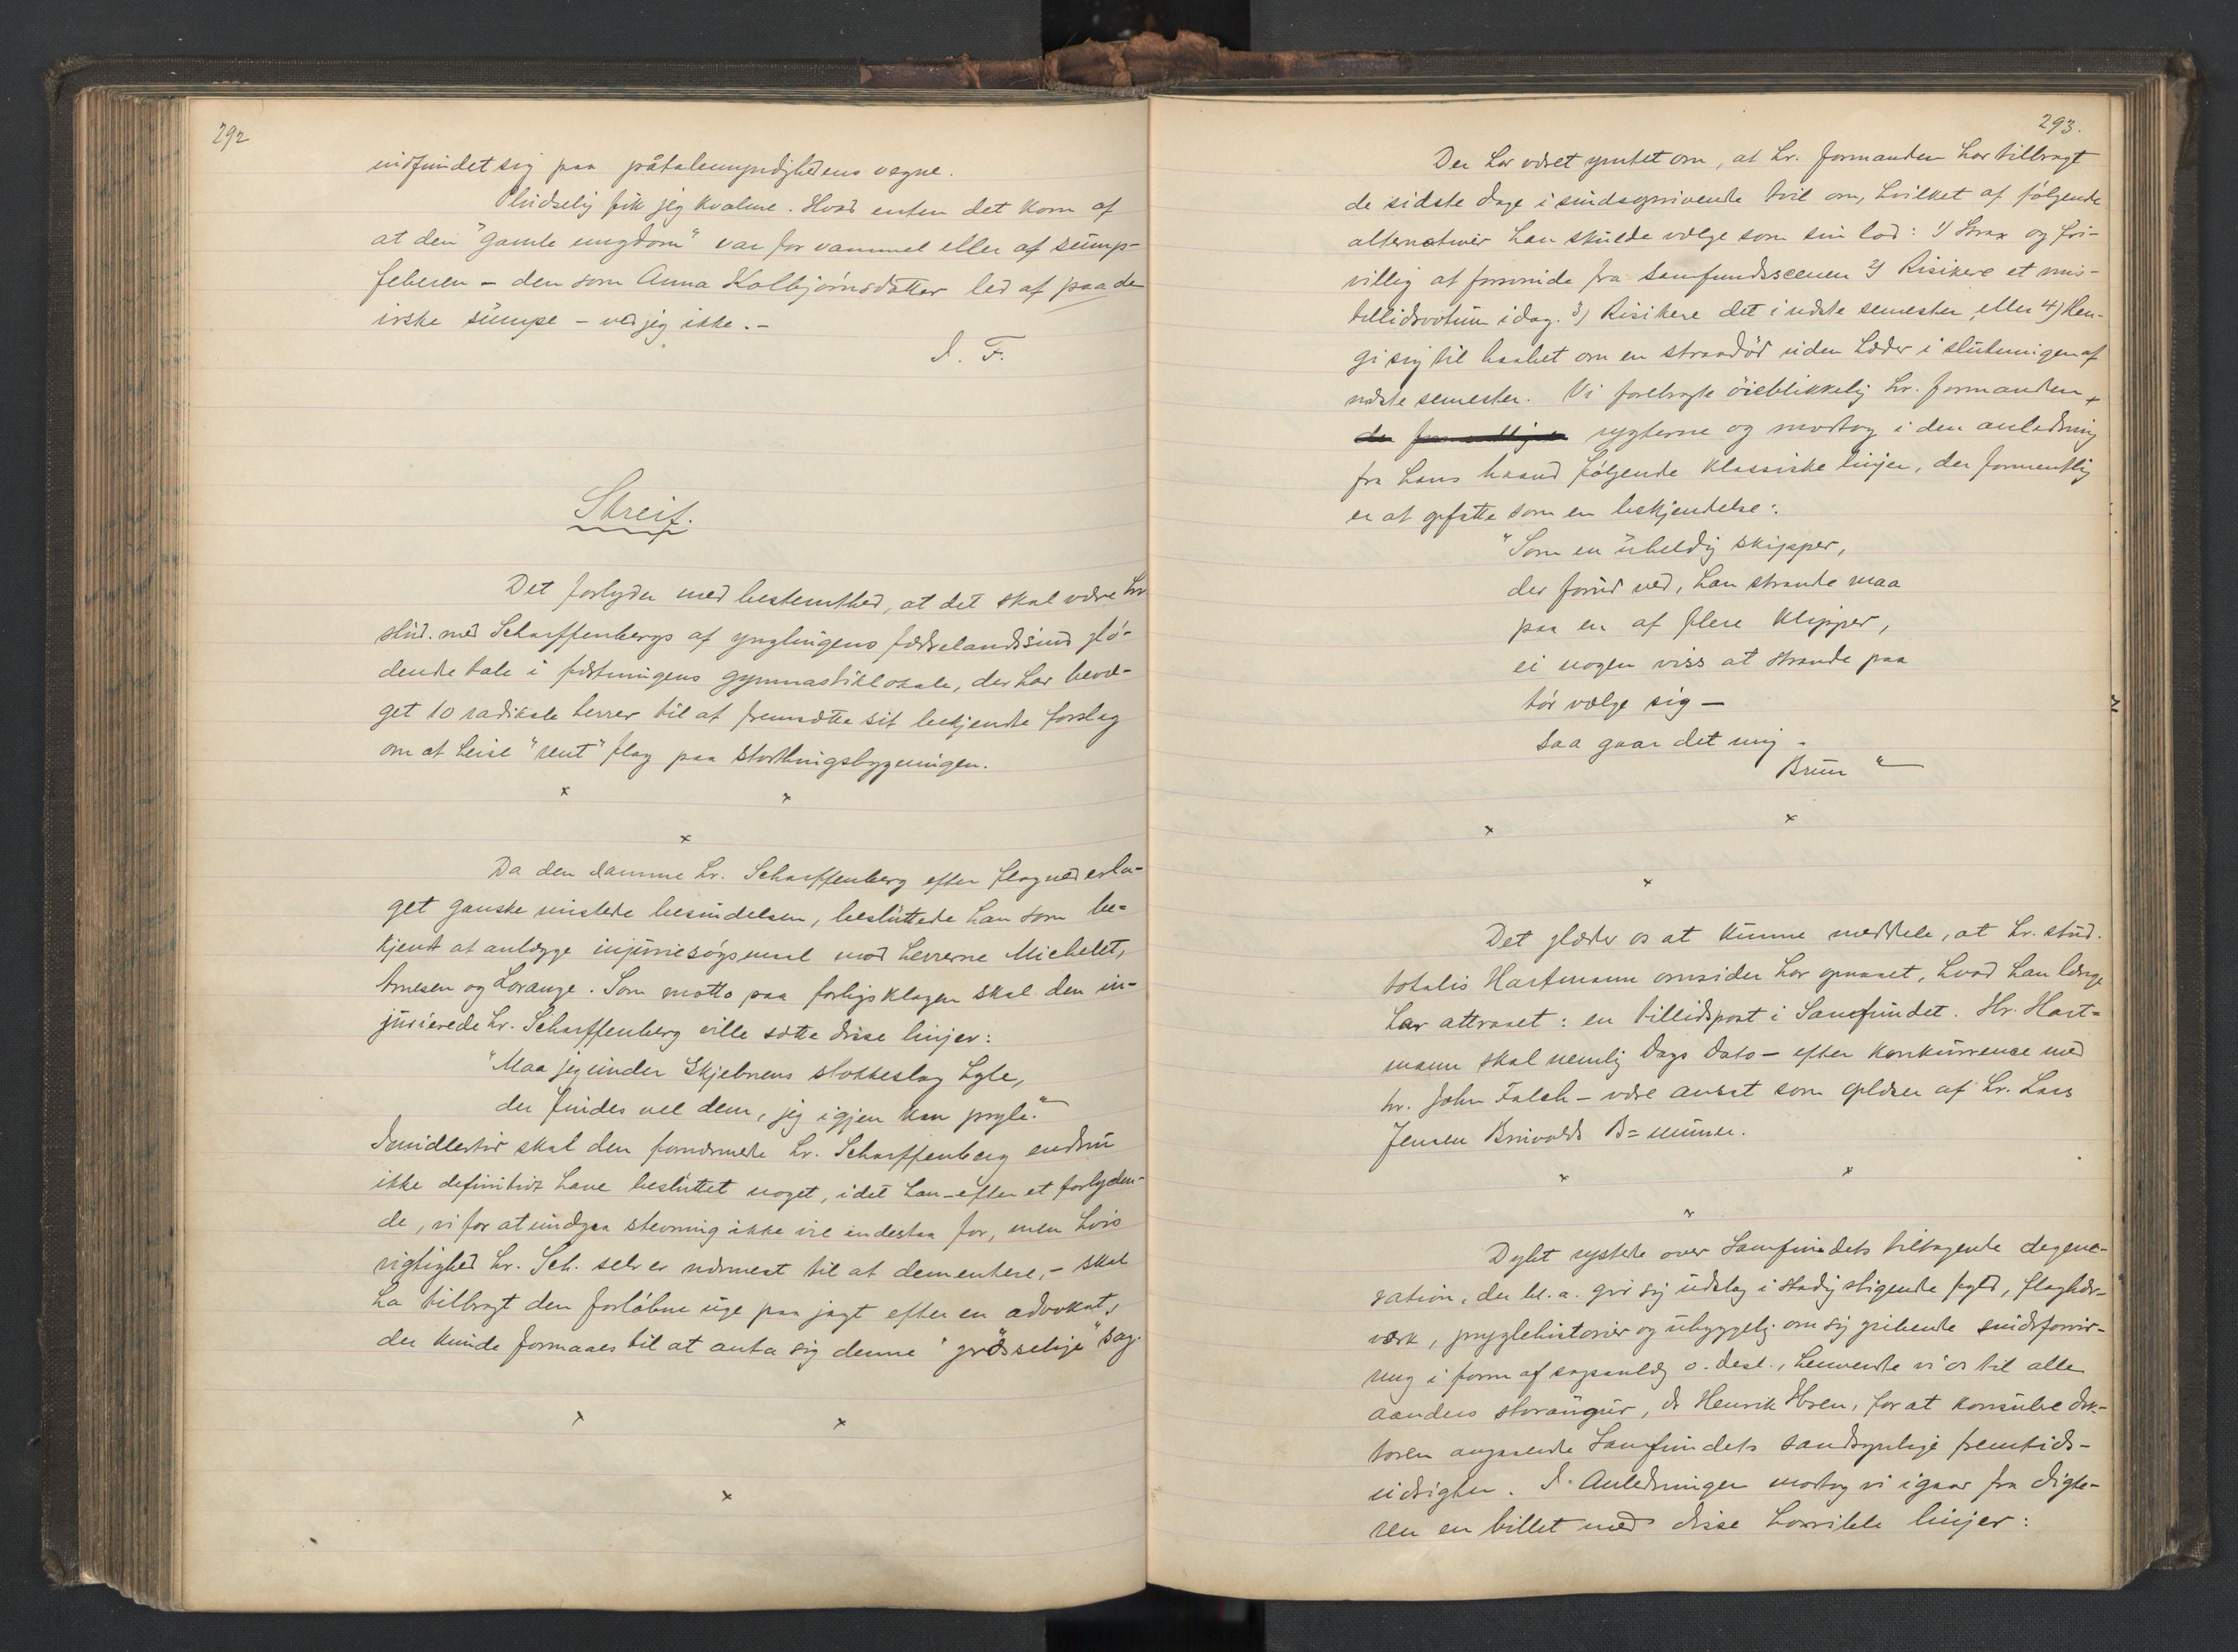 292
indfundet sig paa påtalemyndighedens vegne.
Pludselig fik jeg kvalme. Hvad enten det kom af
at den "gamle ungdom" var for vammel eller af sump-
feberen – den som Anna Kolbjørnsdatter led af paa de
irske sumpe – ved jeg ikke. –
I. F.
Streif.
Det forlyder med bestemthed, at det skal være hr
stud. med Scharffenbergs af ynglingens fædrelandssind glø-
dende tale i fæstningens gymnastiklokale, der har bevæ-
get 10 radikale herrer til at fremsætte sit bekjendte forslag
om at heise "rent" flag paa storthingsbygningen.
x x
x
Da den samme hr. Scharffenberg efter flagnederla-
get ganske mistede besindelsen, besluttede han som be-
kjendt at anlægge injuriesøgsmaal mod herrerne Michelet,
Arnesen og Lorange. Som motto paa forligsklagen skal den in-
jurierede hr. Scharffenberg ville sætte disse linjer:
"Maa jeg under Skjebnens stokkeslag hyle,
der findes vel dem, jeg igjen kan pryle."
Imidlertid skal den fornærmede hr. Scharffenberg endnu
ikke definitivt have besluttet noget, idet han – efter et forlyden-
de, vi for at undgaa stevning ikke vil indestaa for, men hvis
rigtighed hr. Sch. selv er nærmest til at dementere, – skal
ha tilbragt den forløbne uge paa jagt efter en advokat,
der kunde formaaes til at anta sig denne "grässelige" sag.
x x
x
293.
Der har været ymtet om, at hr. formanden har tilbragt
de sidste dage i sindsoprivende tvil om, hvilket af følgende
alternativer han skulde vælge som sin lod: 1) Strax og fri-
villig at forsvinde fra Samfundsscenen 2) Risikere et mis-
tillidsvotum idag. 3) Risikere det i næste semester, eller 4) Hen-
gi sig til haabet om en straadød uden hæder i slutningen af
næste semester. Vi forelagte øieblikkelig hr. formanden
rygterne og modtog i den anledning
fra hans haand følgende klassiske linjer, der formentlig
er at opfatte som en bekjendelse:
"Som en uheldig skipper,
der forud ved, han strande maa
paa en af flere klipper,
ei nogen viss at strande paa
tør vælge sig –
saa gaar det mig –
Bruun "
x x
x
Det glæder os at kunne meddele, at hr. stud.
totalis Hartmann omsider har opnaaet, hvad han længe
har attraaet: en tillidspost i Samfundet. Hr. Hart-
mann skal nemlig dags dato – efter konkurrence med
hr. John Falch – være ansat som oplæser af hr. Lars
Jensen B=numre.
x x
x
Dybt rystede over Samfundets tiltagende degene-
ration, der bl. a. gir sig udslag i stadig stigende fyld, flaghær-
værk, pryglehistorier og uhyggelig om sig gribende sindsforvir-
ring i form af sagsanlæg o. desl., henvendte vi os til alle
aanders storaugur, dr Henrik Ibsen, for at konsulere dok-
toren angaaende Samfundets sandsynlige fremtids-
udsigter. I Anledningen modtog vi igaar fra digte-
ren en billet med disse horrible linjer: